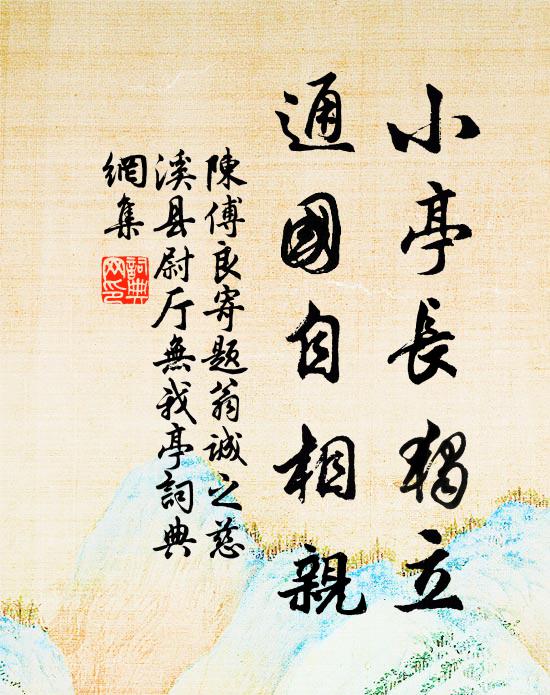 小亭長獨立
通國自相親
陳傅良寄題翁誠之慈
溪县尉厅無我亭詞典
網集
詞典網印